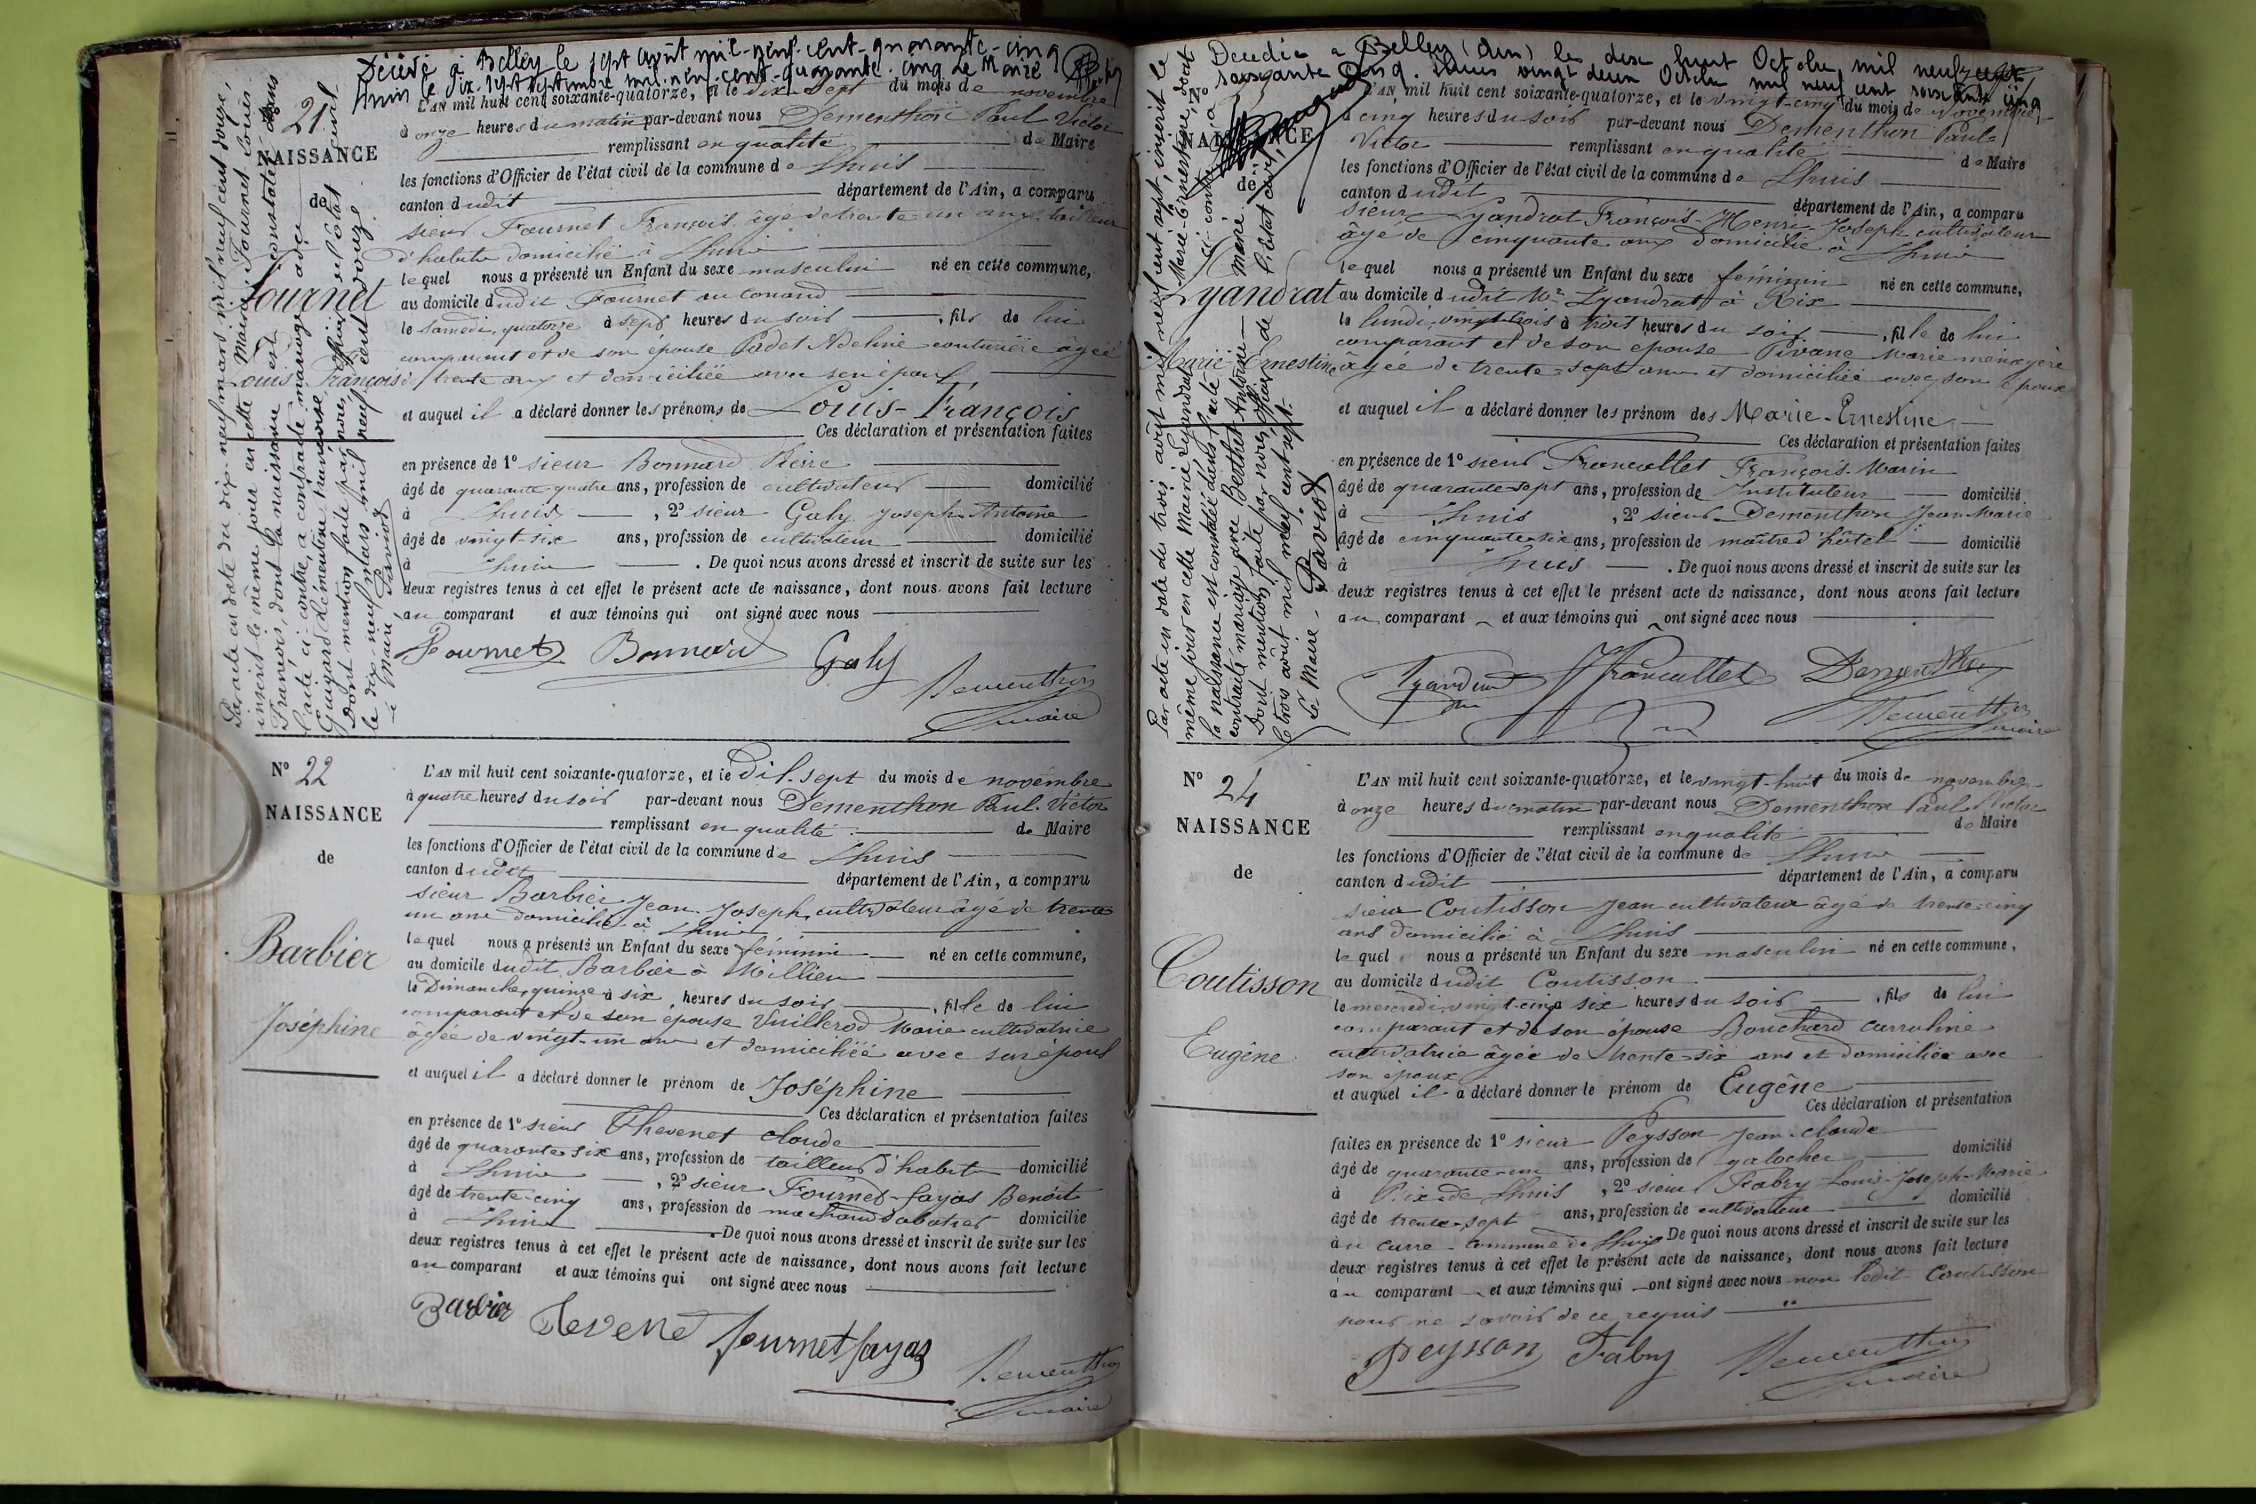 Décédé à Belley le sept août mil-neuf-cent-quarante-cinq
Lhuis le dix-sept septembre mil-neuf-cent-quarante-cinq Le Maire
21
NAISSANCE
de
Fournet
Louis François
Par acte en date du dix-neuf mars mil neuf cent douze,
inscrit le même jour en cette Mairie, Fournet Louis
François, dont la naissance est constatée dans
l'acte ci-contre a contracté mariage avec
Guigard Clémentine
Dont mention faite par nous, officier de l'état civil
le dix-neuf mars mil neuf cent douze.
Le Maire, Paviot
L'AN mil huit cent soixante-quatorze, et le dix-sept du mois de novembre
à onze heures du matin par-devant nous Dementhon Paul Victor
remplissant en qualité de Maire
les fonctions d'Officier de l'état civil de la commune de Lhuis
canton dudit département de l'Ain, a comparu
sieur Fournet François, âgé de trente un ans, tailleur
d'habits domicilié à Lhuis
lequel nous a présenté un Enfant du sexe masculin né en cette commune,
au domicile dudit Fournet au Conand
le samedi, quatorze à sept heures du soir, fils de lui
comparant et de son épouse Padet Adeline couturière âgée
de trente ans et domiciliée avec son époux
et auquel il a déclaré donner les prénoms de Louis-François
Ces déclaration et présentation faites
en présence de 1º sieur Bonnard Pierre
âgé de quarante-quatre ans, profession de cultivateur domicilié
à Lhuis, 2º sieur Galy Joseph-Antoine
âgé de vingt-six ans, profession de cultivateur domicilié
à Lhuis. De quoi nous avons dressé et inscrit de suite sur les
deux registres tenus à cet effet le présent acte de naissance, dont nous avons fait lecture
au comparant et aux témoins qui ont signé avec nous
Fournet Bonnard Galy
Dementhon
maire
Nº 22
NAISSANCE
de
Barbier
Joséphine
L'AN mil huit cent soixante-quatorze, et le Dix-sept du mois de novembre
à quatre heures du soir par-devant nous Dementhon Paul-Victor
remplissant en qualité de Maire
les fonctions d'Officier de l'état civil de la commune de Lhuis
canton dudit département de l'Ain, a comparu
sieur Barbier Jean-Joseph, cultivateur âgé de trente
un ans domicilié à Lhuis
lequel nous a présenté un Enfant du sexe féminin né en cette commune,
au domicile dudit Barbier à Millieu
le Dimanche, quinze à six heures du soir, fille de lui
comparant et de son épouse Vuillerod Marie cultivatrice
âgée de vingt-un ans et domiciliée avec son époux
et auquel il a déclaré donner le prénom de Joséphine
Ces déclaration et présentation faites
en présence de 1º sieur Thevenet Claude
âgé de quarante six ans, profession de tailleur d'habits domicilié
à Lhuis, 2º sieur Fournet-fayas Benoît
âgé de trente-cinq ans, profession de marchand domicilié
à Lhuis De quoi nous avons dressé et inscrit de suite sur les
deux registres tenus à cet effet le présent acte de naissance, dont nous avons fait lecture
au comparant et aux témoins qui ont signé avec nous
Barbier Tevene fournet fayas
Dementhon
maire
Décédée à Belley (Ain) le dix huit Octobre mil neuf cent
soixante cinq. Lhuis vingt deux Octobre mil neuf cent soixante cinq
Nº
NAISSANCE
de
Lyandrat
Marie Ernestine
Par acte en date du trois août mil neuf cent sept, inscrit le
même jour en cette Mairie, Lyandrat Marie-Ernestine, dont
la naissance est constatée dans l'acte ci-contre, a
contracté mariage avec Berthet Antoine Marie.
Dont mention faite par nous, officier de l'état civil,
le trois août mil neuf cent sept.
Le Maire, Paviot
L'AN mil huit cent soixante-quatorze, et le vingt-cinq du mois de novembre
à cinq heures du soir par-devant nous Dementhon Paul-
Victor remplissant en qualité de Maire
les fonctions d'Officier de l'état civil de la commune de Lhuis
canton dudit département de l'Ain, a comparu
sieur Lyandrat François-Henri-Joseph cultivateur
âgé de cinquante ans domicilié à Lhuis
lequel nous a présenté un Enfant du sexe féminin né en cette commune,
au domicile dudit Mr Lyandrat à Rix
le lundi, vingt-trois à trois heures du soir, fille de lui
comparant et de son épouse Pivane Marie ménagère
âgée de trente-sept ans et domiciliée avec son époux
et auquel il a déclaré donner les prénom des Marie-Ernestine
Ces déclaration et présentation faites
en présence de 1º sieur Francallet François-Marin
âgé de quarante-sept ans, profession de Instituteur domicilié
à Lhuis, 2º sieur Dementhon Jean-Marie
âgé de cinquante-six ans, profession de maître d'hôtel domicilié
à Lhuis. De quoi nous avons dressé et inscrit de suite sur les
deux registres tenus à cet effet le présent acte de naissance, dont nous avons fait lecture
au comparant et aux témoins qui ont signé avec nous
Lyandrat Francallet Dementhon
Dementhon
maire
Nº 24
NAISSANCE
de
Coutisson
Eugène
L'AN mil huit cent soixante-quatorze, et le vingt-huit du mois de novembre
à onze heures du matin par-devant nous Dementhon Paul Victor
remplissant en qualité de Maire
les fonctions d'Officier de l'état civil de la commune de Lhuis
canton dudit département de l'Ain, a comparu
sieur Coutisson Jean cultivateur âgé de trente-cinq
ans domicilié à Lhuis
lequel nous a présenté un Enfant du sexe masculin né en cette commune,
au domicile dudit Coutisson
le mercredi, vingt-cinq à six heures du soir, fils de lui
comparant et de son épouse Bouchard Carroline
cultivatrice âgée de trente-six ans et domiciliée avec
son époux
et auquel il a déclaré donner le prénom de Eugêne
Ces déclaration et présentation
faites en présence de 1º sieur Peysson Jean-Claude
âgé de quarante-un ans, profession de galocher domicilié
à Rix de Lhuis, 2º sieur Fabry Louis-Joseph-Marie
âgé de trente-sept ans, profession de cultivateur domicilié
à commune de Lhuis De quoi nous avons dressé et inscrit de suite sur les
deux registres tenus à cet effet le présent acte de naissance, dont nous avons fait lecture
au comparant et aux témoins qui ont signé avec nous non ledit Coutisson
pour ne savoir de ce requis
Peysson Fabry Dementhon
maire